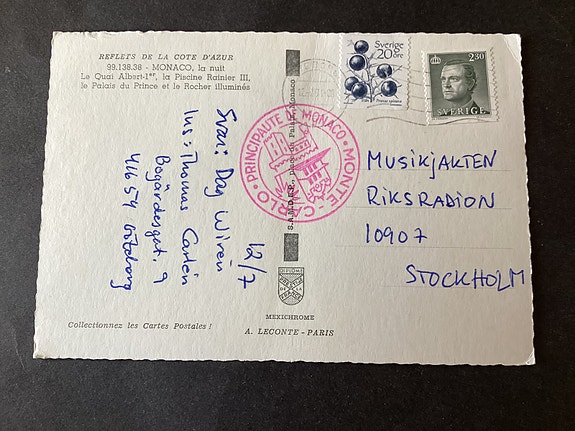 REFLETS DE LA COTE D'AZUR
99.138.38 - MONACO, la nuit
Le Quai Albert-1er, la Piscine Rainier III,
le Palais du Prince et le Rocher illuminés
Sverige
20 öre
2.30
SVERIGE
PRINCIPAUTE DE MONACO • MONTE-CARLO
12/7
Svar: Dag Wirén
Ins: Thomas Carlén
Bögårdesgat. 9
416 54 Göteborg
MUSIKJAKTEN
RIKSRADION
10907
STOCKHOLM
MEXICHROME
A. LECONTE - PARIS
Collectionnez les Cartes Postales !